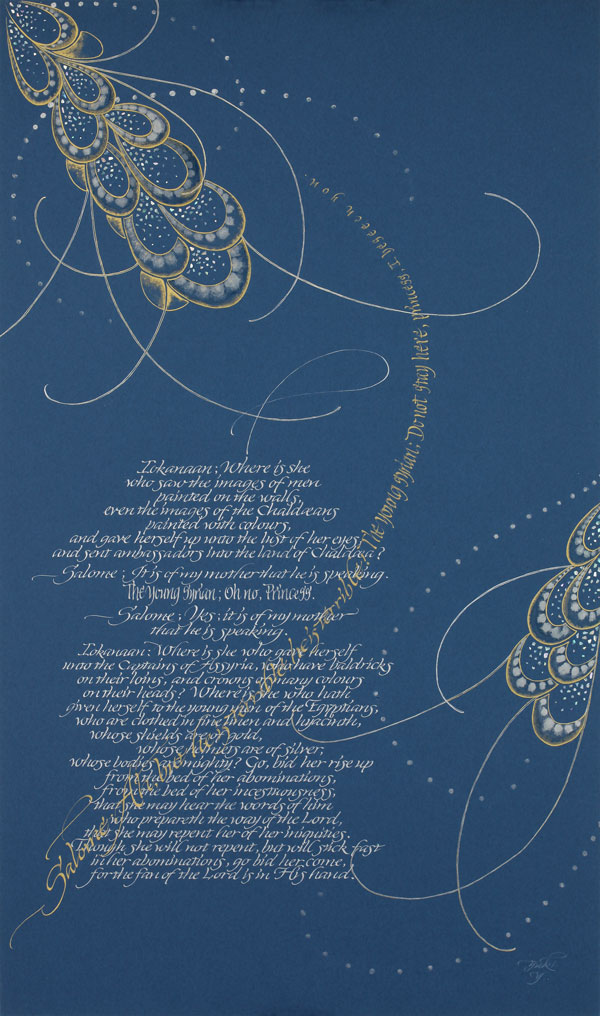 Iokanaan: Where is she
who saw the images of men
painted on the walls,
even the images of the Chaldæans
painted with colours,
and gave herself up unto the lust of her eyes,
and sent ambassadors into the land of Chaldæa?
Salome: It is of my mother that he is speaking.
The Young Syrian: Oh no, Princess.
Salome: Yes: it is of my mother
that he is speaking.
Iokanaan: Where is she who gave herself
unto the Captains of Assyria, who have baldricks
on their loins, and crowns of many colours
on their heads? Where is she who hath
given herself to the young men of the Egyptians,
who are clothed in fine linen and hyacinth,
whose shields are of gold,
whose helmets are of silver,
whose bodies are mighty? Go, bid her rise up
from the bed of her abominations,
from the bed of her incestuousness,
that she may hear the words of him
who prepareth the way of the Lord,
that she may repent her of her iniquities.
Though she will not repent, but will stick fast
in her abominations, go bid her come,
for the fan of the Lord is in His hand.
Salome: Ah but he is terrible, he is terrible! The Young Syrian: Do not stay here, Princess, I beseech you.